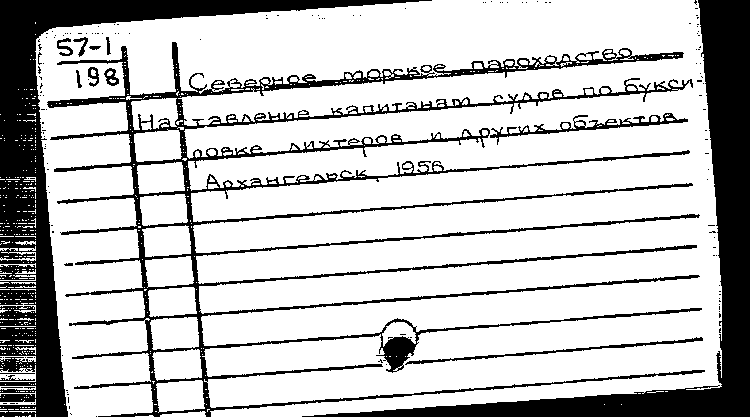 57-1
198
Северное морское пароходство
Наставление капитанам судов по букси-
ровке лихтеров и других объектов
Архангельск, 1956